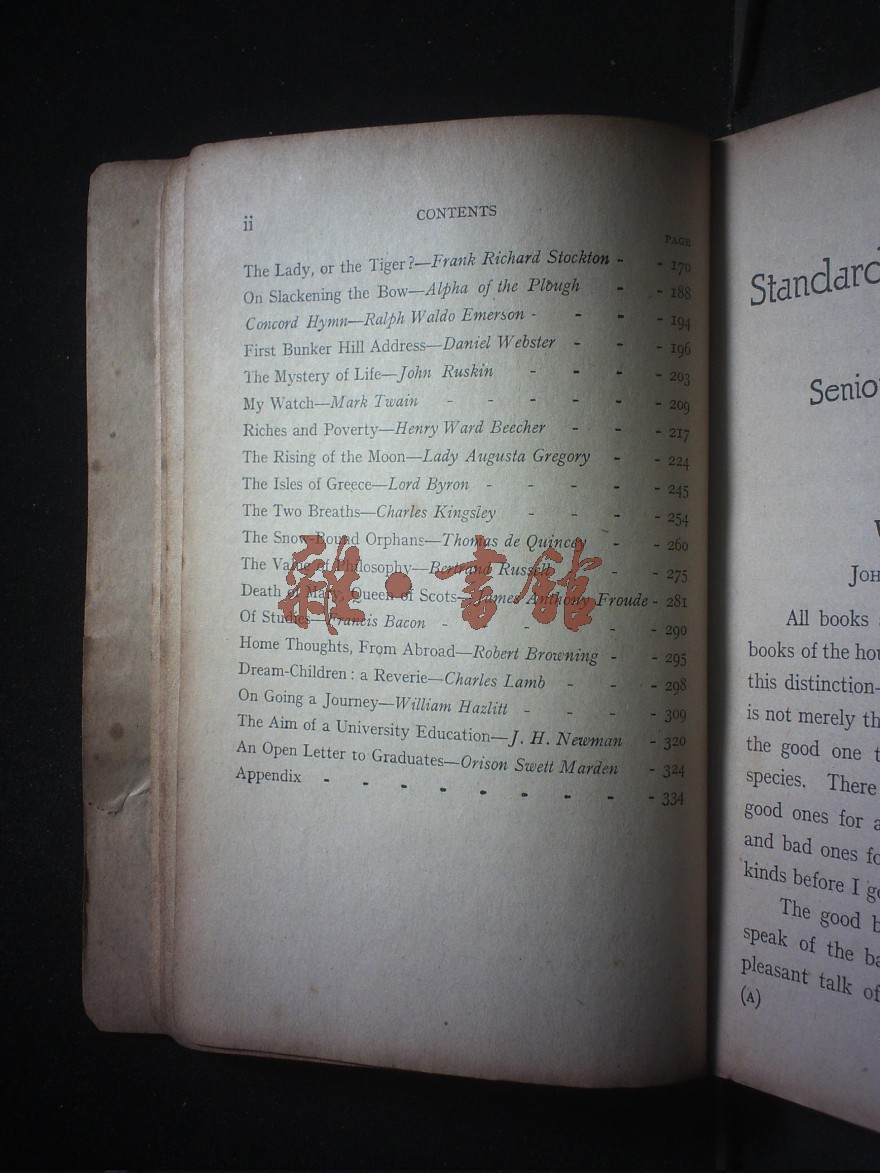 ii
CONTENTS
PAGE
The Lady, or the Tiger?—Frank Richard Stockton - - 170
On Slackening the Bow—Alpha of the Plough - - 188
Concord Hymn—Ralph Waldo Emerson - - - - 194
First Bunker Hill Address—Daniel Webster - - - 196
The Mystery of Life—John Ruskin - - - - 203
My Watch—Mark Twain - - - - - - 209
Riches and Poverty—Henry Ward Beecher - - - 217
The Rising of the Moon—Lady Augusta Gregory - - 224
The Isles of Greece—Lord Byron - - - - - 245
The Two Breaths—Charles Kingsley - - - - 254
The Snow-Bound Orphans—Thomas de Quincey - - 260
The Value of Philosophy—Bertrand Russell - - 275
Death of Mary, Queen of Scots—James Anthony Froude - 281
Of Studies—Francis Bacon - - - - - 290
Home Thoughts, From Abroad—Robert Browning - - 295
Dream-Children: a Reverie—Charles Lamb - - - 298
On Going a Journey—William Hazlitt - - - - 309
The Aim of a University Education—J. H. Newman - 320
An Open Letter to Graduates—Orison Swett Marden - 324
Appendix - - - - - - - - - 334
雜·書館
Standard
Senio
JOH
All books
books of the hou
this distinction—
is not merely th
the good one t
species. There
good ones for a
and bad ones fo
kinds before I go
The good b
speak of the ba
pleasant talk of
(A)